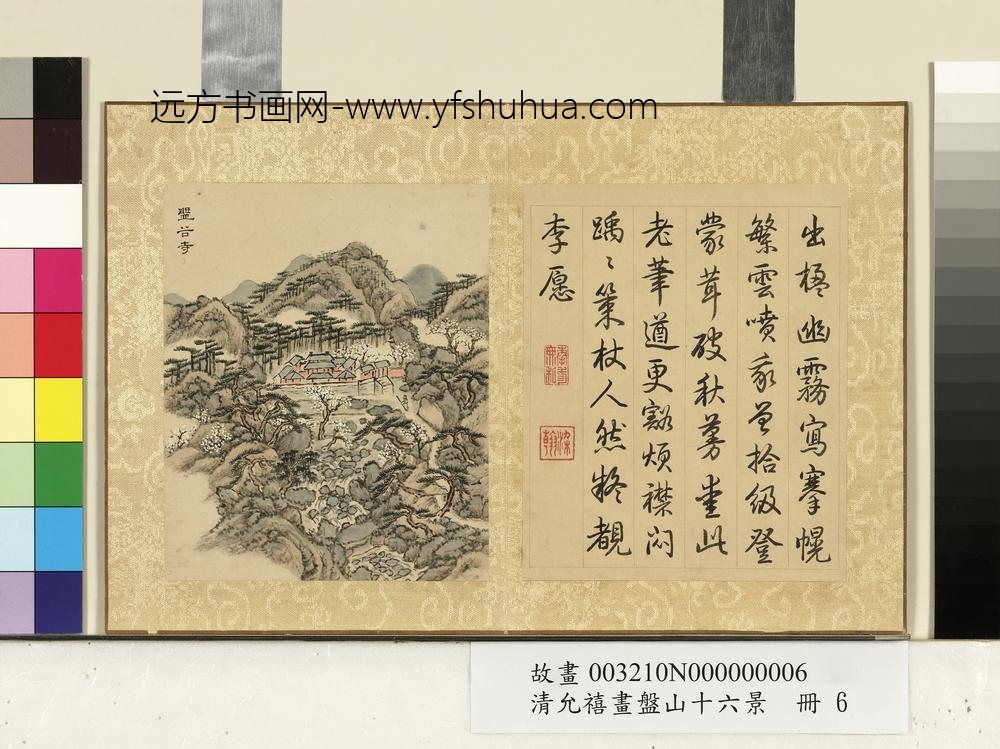 远方书画网-www.yfshuhua.com
盤谷寺
出楹幽霧寫搴幌
繁雲噴我曾拾級登
蒙茸破秋蔓畫此
老筆遒更豁煩襟悶
踽踽策杖人然疑覩
李愿
染翰
故畫 003210N000000006
清允禧畫盤山十六景 冊 6